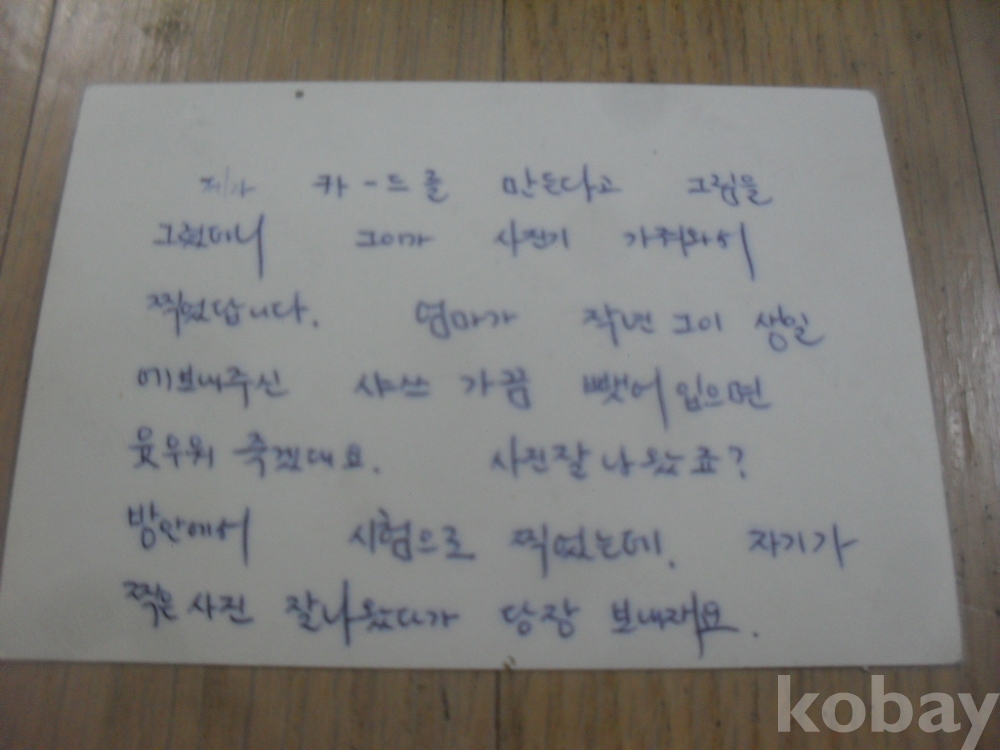 제가 카-드를 만든다고 그림을
그렸더니 그이가 사진기 가져와서
찍었답니다. 엄마가 작년 그이 생일
에보내주신 샤쓰 가끔 뺏어 입으면
웃우워 죽겠대요. 사진잘 나왔죠?
방안에서 시험으로 찍었는데. 자기가
찍은 사진 잘나왔다가 당장 보내래요.
kobay